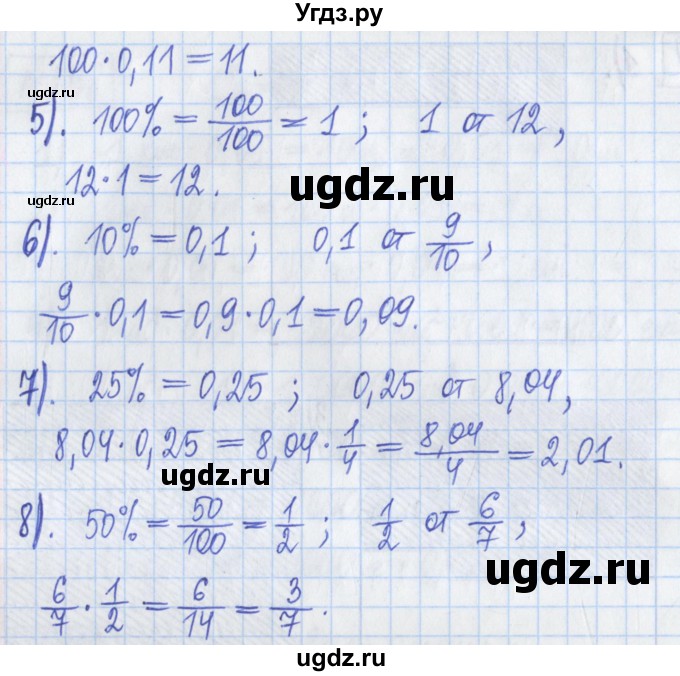 Угдз.ру
100·0,11=11.
ugdz.ru
5). 100% = 100/100 = 1 ; 1 от 12,
12·1=12.
ugdz.ru
ugdz.ru
6). 10% = 0,1 ; 0,1 от 9/10,
9/10·0,1=0,9·0,1=0,09.
7). 25% = 0,25 ; 0,25 от 8,04,
8,04·0,25 = 8,04·1/4 = 8,04/4 = 2,01.
ugdz.ru
8). 50% = 50/100 = 1/2 ; 1/2 от 6/7,
ugdz.ru
6/7·1/2 = 6/14 = 3/7.
ugdz.ru